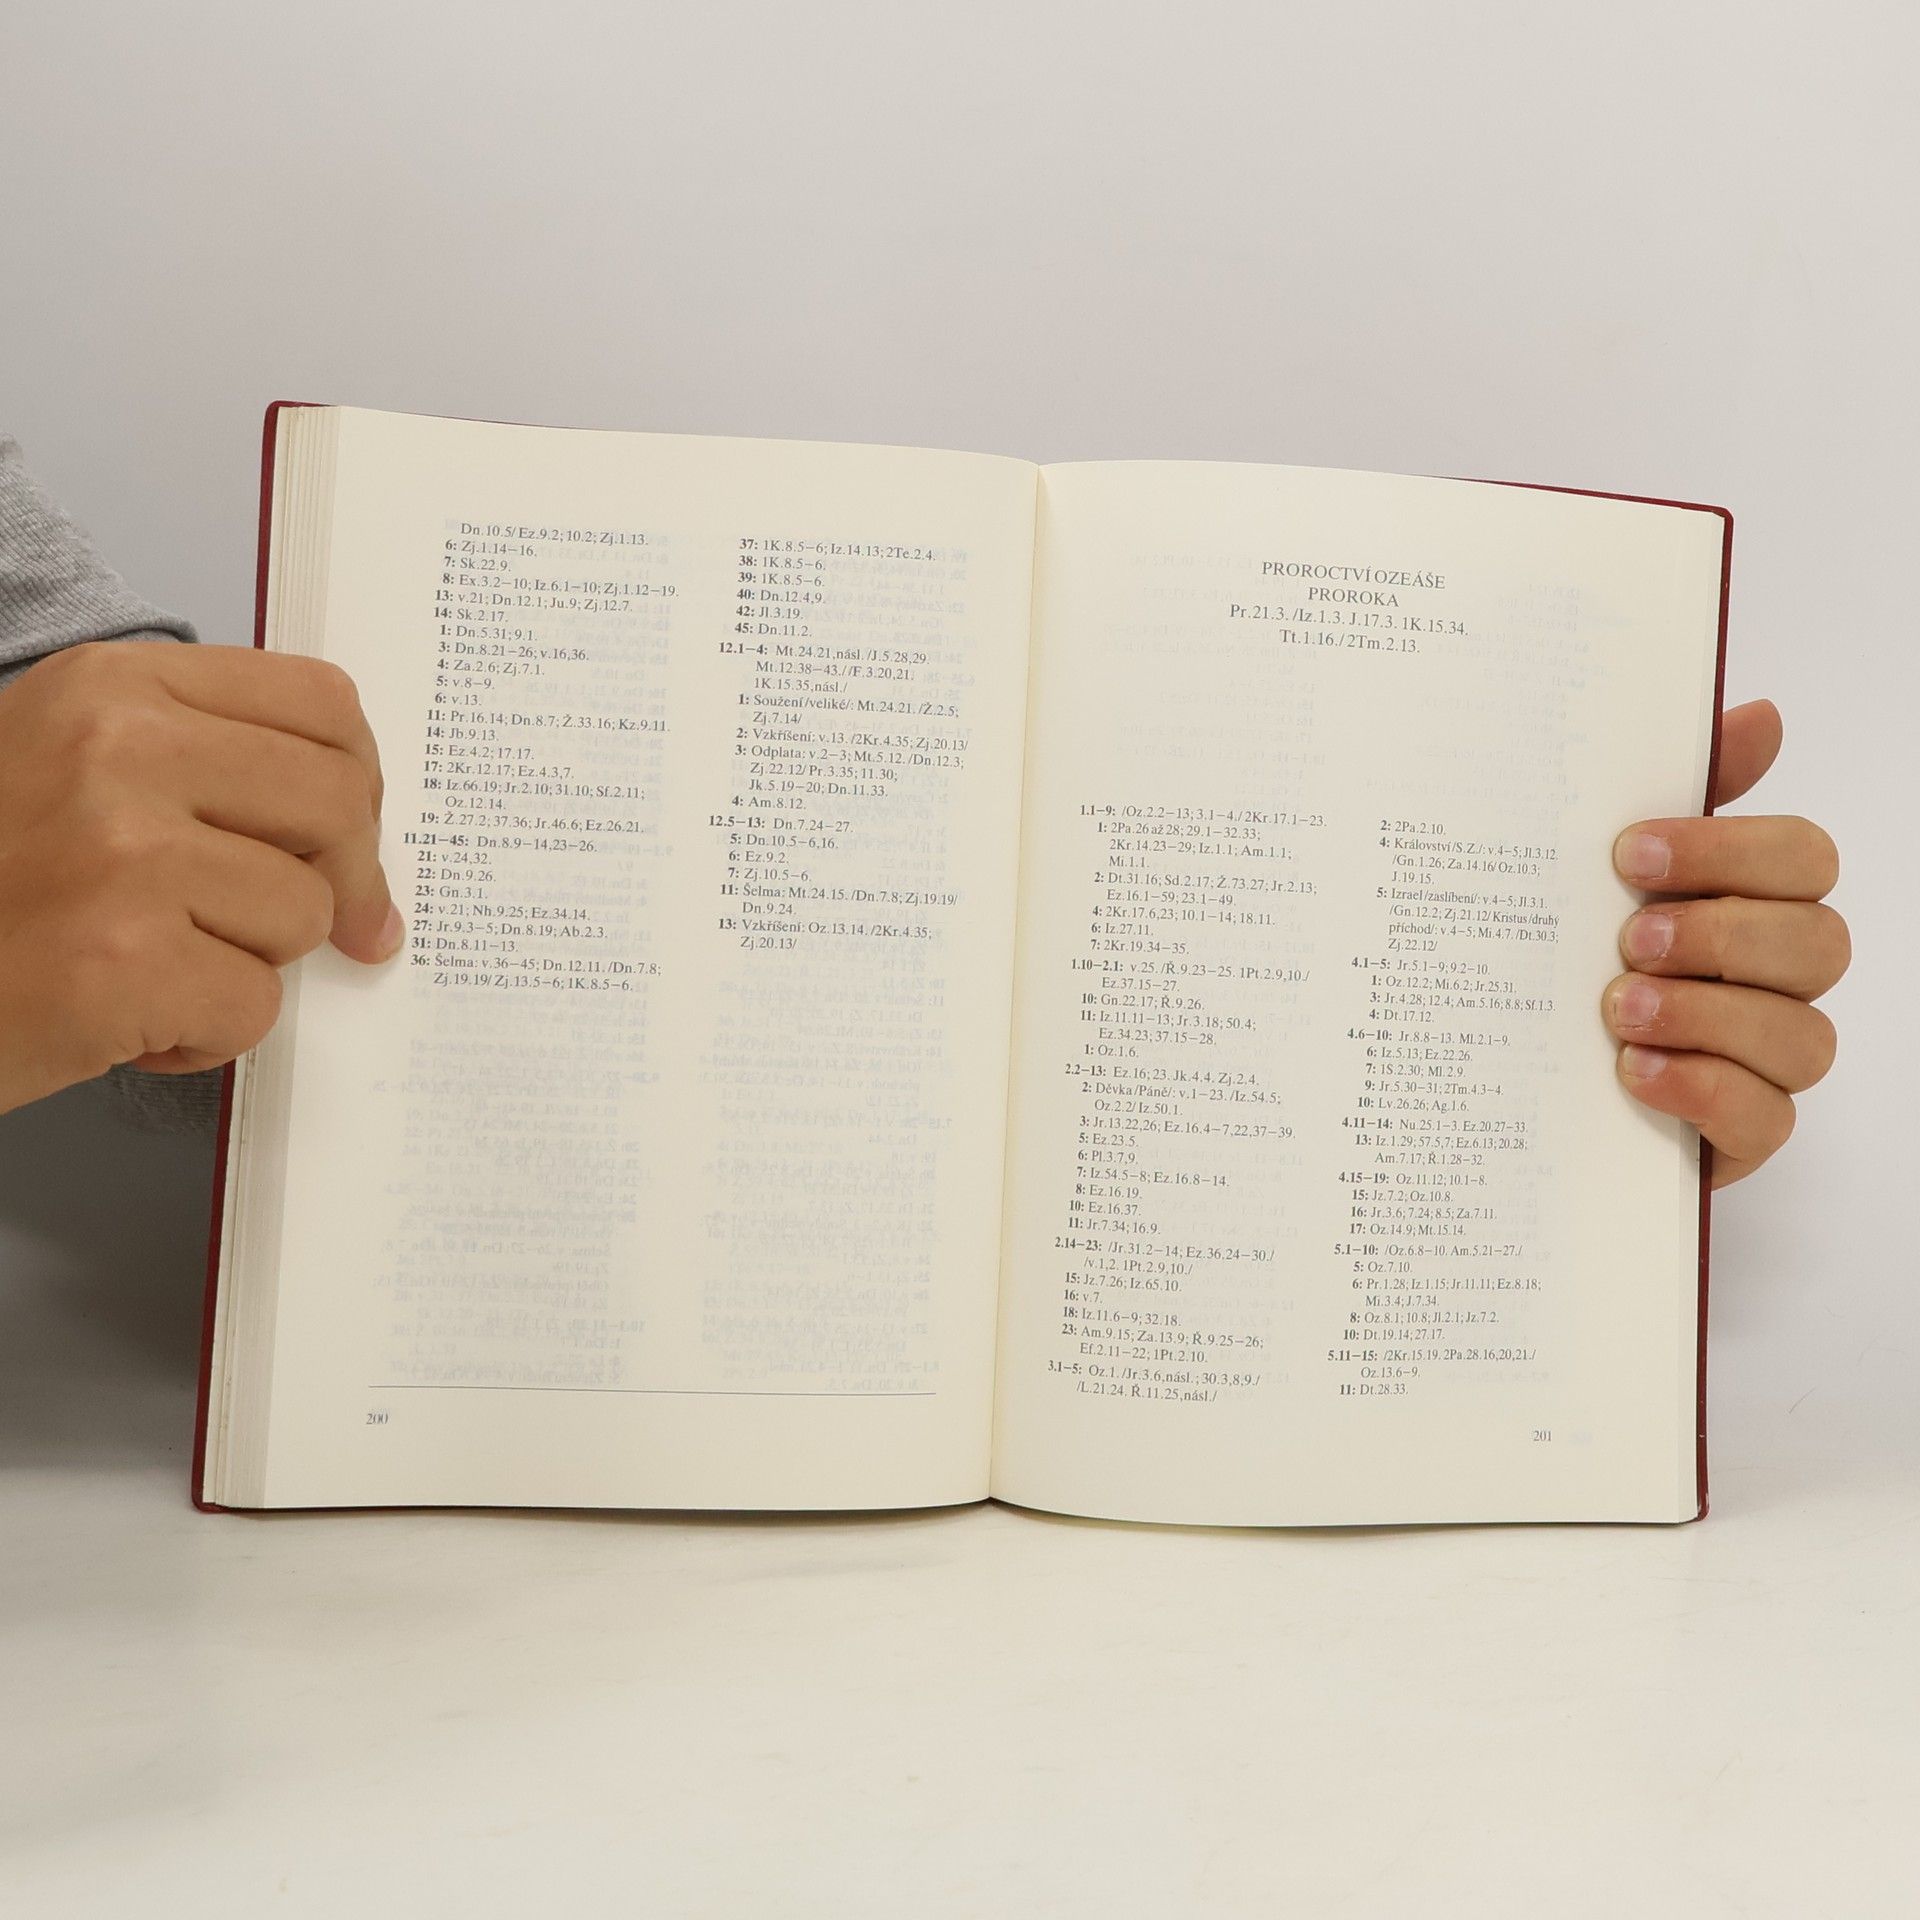 Dn.10.5/ Ez.9.2; 10.2; Zj.1.13.
6: Zj.1.14−16.
7: Sk.22.9.
8: Ex.3.2−10; Iz.6.1−10; Zj.1.12−19.
13: v.21; Dn.12.1; Ju.9; Zj.12.7.
14: Sk.2.17.
1: Dn.5.31; 9.1.
3: Dn.8.21−26; v.16,36.
4: Za.2.6; Zj.7.1.
5: v.8−9.
6: v.13.
11: Pr.16.14; Dn.8.7; Ž.33.16; Kz.9.11.
14: Jb.9.13.
15: Ez.4.2; 17.17.
17: 2Kr.12.17; Ez.4.3,7.
18: Iz.66.19; Jr.2.10; 31.10; Sf.2.11;
Oz.12.14.
19: Ž.27.2; 37.36; Jr.46.6; Ez.26.21.
11.21−45: Dn.8.9−14,23−26.
21: v.24,32.
22: Dn.9.26.
23: Gn.3.1.
24: v.21; Nh.9.25; Ez.34.14.
27: Jr.9.3−5; Dn.8.19; Ab.2.3.
31: Dn.8.11−13.
36: Šelma: v.36−45; Dn.12.11. /Dn.7.8;
Zj.19.19/ Zj.13.5−6; 1K.8.5−6.
37: 1K.8.5−6; Iz.14.13; 2Te.2.4.
38: 1K.8.5−6.
39: 1K.8.5−6.
40: Dn.12.4,9.
42: Jl.3.19.
45: Dn.11.2.
12.1−4: Mt.24.21,násl. /J.5.28,29.
Mt.12.38−43./ /F.3.20,21.
1K.15.35,násl./
1: Soužení /veliké/: Mt.24.21. /Ž.2.5;
Zj.7.14/
2: Vzkříšení: v.13. /2Kr.4.35; Zj.20.13/
3: Odplata: v.2−3; Mt.5.12. /Dn.12.3;
Zj.22.12/ Pr.3.35; 11.30;
Jk.5.19−20; Dn.11.33.
4: Am.8.12.
12.5−13: Dn.7.24−27.
5: Dn.10.5−6,16.
6: Ez.9.2.
7: Zj.10.5−6.
11: Šelma: Mt.24.15. /Dn.7.8; Zj.19.19/
Dn.9.24.
13: Vzkříšení: Oz.13.14. /2Kr.4.35;
Zj.20.13/
200
PROROCTVÍ OZEÁŠE
PROROKA
Pr.21.3. /Iz.1.3. J.17.3. 1K.15.34.
Tt.1.16./ 2Tm.2.13.
1.1−9: /Oz.2.2−13; 3.1−4./ 2Kr.17.1−23.
1: 2Pa.26 až 28; 29.1−32.33;
2Kr.14.23−29; Iz.1.1; Am.1.1;
Mi.1.1.
2: Dt.31.16; Sd.2.17; Ž.73.27; Jr.2.13;
Ez.16.1−59; 23.1−49.
4: 2Kr.17.6,23; 10.1−14; 18.11.
6: Iz.27.11.
7: 2Kr.19.34−35.
1.10−2.1: v.25. /Ř.9.23−25. 1Pt.2.9,10./
Ez.37.15−27.
10: Gn.22.17; Ř.9.26.
11: Iz.11.11−13; Jr.3.18; 50.4;
Ez.34.23; 37.15−28.
1: Oz.1.6.
2.2−13: Ez.16; 23. Jk.4.4. Zj.2.4.
2: Děvka /Páně/: v.1−23. /Iz.54.5;
Oz.2.2/ Iz.50.1.
3: Jr.13.22,26; Ez.16.4−7,22,37−39.
5: Ez.23.5.
6: Pl.3.7,9.
7: Iz.54.5−8; Ez.16.8−14.
8: Ez.16.19.
10: Ez.16.37.
11: Jr.7.34; 16.9.
2.14−23: /Jr.31.2−14; Ez.36.24−30./
/v.1,2. 1Pt.2.9,10./
15: Jz.7.26; Iz.65.10.
16: v.7.
18: Iz.11.6−9; 32.18.
23: Am.9.15; Za.13.9; Ř.9.25−26;
Ef.2.11−22; 1Pt.2.10.
3.1−5: Oz.1. /Jr.3.6,násl.; 30.3,8,9./
/L.21.24. Ř.11.25,násl./
2: 2Pa.2.10.
4: Království /S.Z./: v.4−5; Jl.3.12.
/Gn.1.26; Za.14.16/ Oz.10.3;
J.19.15.
5: Izrael /zaslíbení/: v.4−5; Jl.3.1.
/Gn.12.2; Zj.21.12/ Kristus /druhý
příchod/: v.4−5; Mi.4.7. /Dt.30.3;
Zj.22.12/
4.1−5: Jr.5.1−9; 9.2−10.
1: Oz.12.2; Mi.6.2; Jr.25.31.
3: Jr.4.28; 12.4; Am.5.16; 8.8; Sf.1.3.
4: Dt.17.12.
4.6−10: Jr.8.8−13. Ml.2.1−9.
6: Iz.5.13; Ez.22.26.
7: 1S.2.30; Ml.2.9.
9: Jr.5.30−31; 2Tm.4.3−4.
10: Lv.26.26; Ag.1.6.
4.11−14: Nu.25.1−3. Ez.20.27−33.
13: Iz.1.29; 57.5,7; Ez.6.13; 20.28;
Am.7.17; Ř.1.28−32.
4.15−19: Oz.11.12; 10.1−8.
15: Jz.7.2; Oz.10.8.
16: Jr.3.6; 7.24; 8.5; Za.7.11.
17: Oz.14.9; Mt.15.14.
5.1−10: /Oz.6.8−10. Am.5.21−27./
5: Oz.7.10.
6: Pr.1.28; Iz.1.15; Jr.11.11; Ez.8.18;
Mi.3.4; J.7.34.
8: Oz.8.1; 10.8; Jl.2.1; Jz.7.2.
10: Dt.19.14; 27.17.
5.11−15: /2Kr.15.19. 2Pa.28.16,20,21./
Oz.13.6−9.
11: Dt.28.33.
201